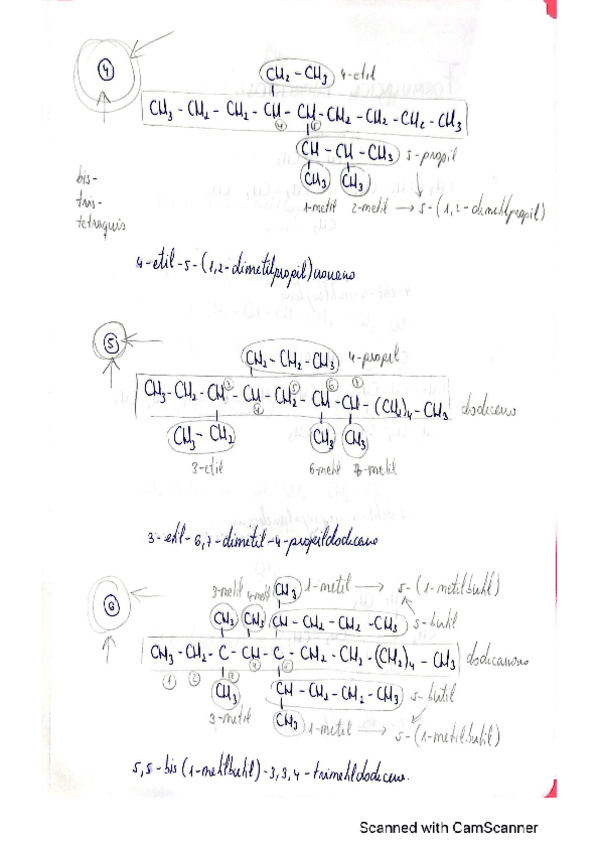 ④
CH₂-CH₃ 4-etil
CH₃-CH₂-CH₂-CH-CH-CH₂-CH₂-CH₂-CH₃
④ ⑤
CH-CH-CH₃ 5-propil
CH₃ CH₃
1-metil 2-metil → 5-(1,2-dimetilpropil)
bis-
tris-
tetraquis
4-etil-5-(1,2-dimetilpropil)nonano
⑤
CH₂-CH₂-CH₃ 4-propil
CH₃-CH₂-CH-CH-CH₂-CH-CH-(CH₂)₄-CH₃ dodecano
③ ④ ⑤ ⑥ ⑦
CH₃-CH₂ CH₃ CH₃
3-etil 6-metil 7-metil
3-etil-6,7-dimetil-4-propildodecano
⑥
3-metil 4-metil CH₃ 1-metil → 5-(1-metilbutil)
CH₃ CH₃ CH-CH₂-CH₂-CH₃ 5-butil
CH₃-CH₂-C-CH-C-CH₂-CH₂-(CH₂)₄-CH₃
① ② ③ ④ ⑤
CH₃ CH-CH₂-CH₂-CH₃ 5-butil
3-metil CH₃ 1-metil → 5-(1-metilbutil)
5,5-bis(1-metilbutil)-3,3,4-trimetildodecano.
Scanned with CamScanner